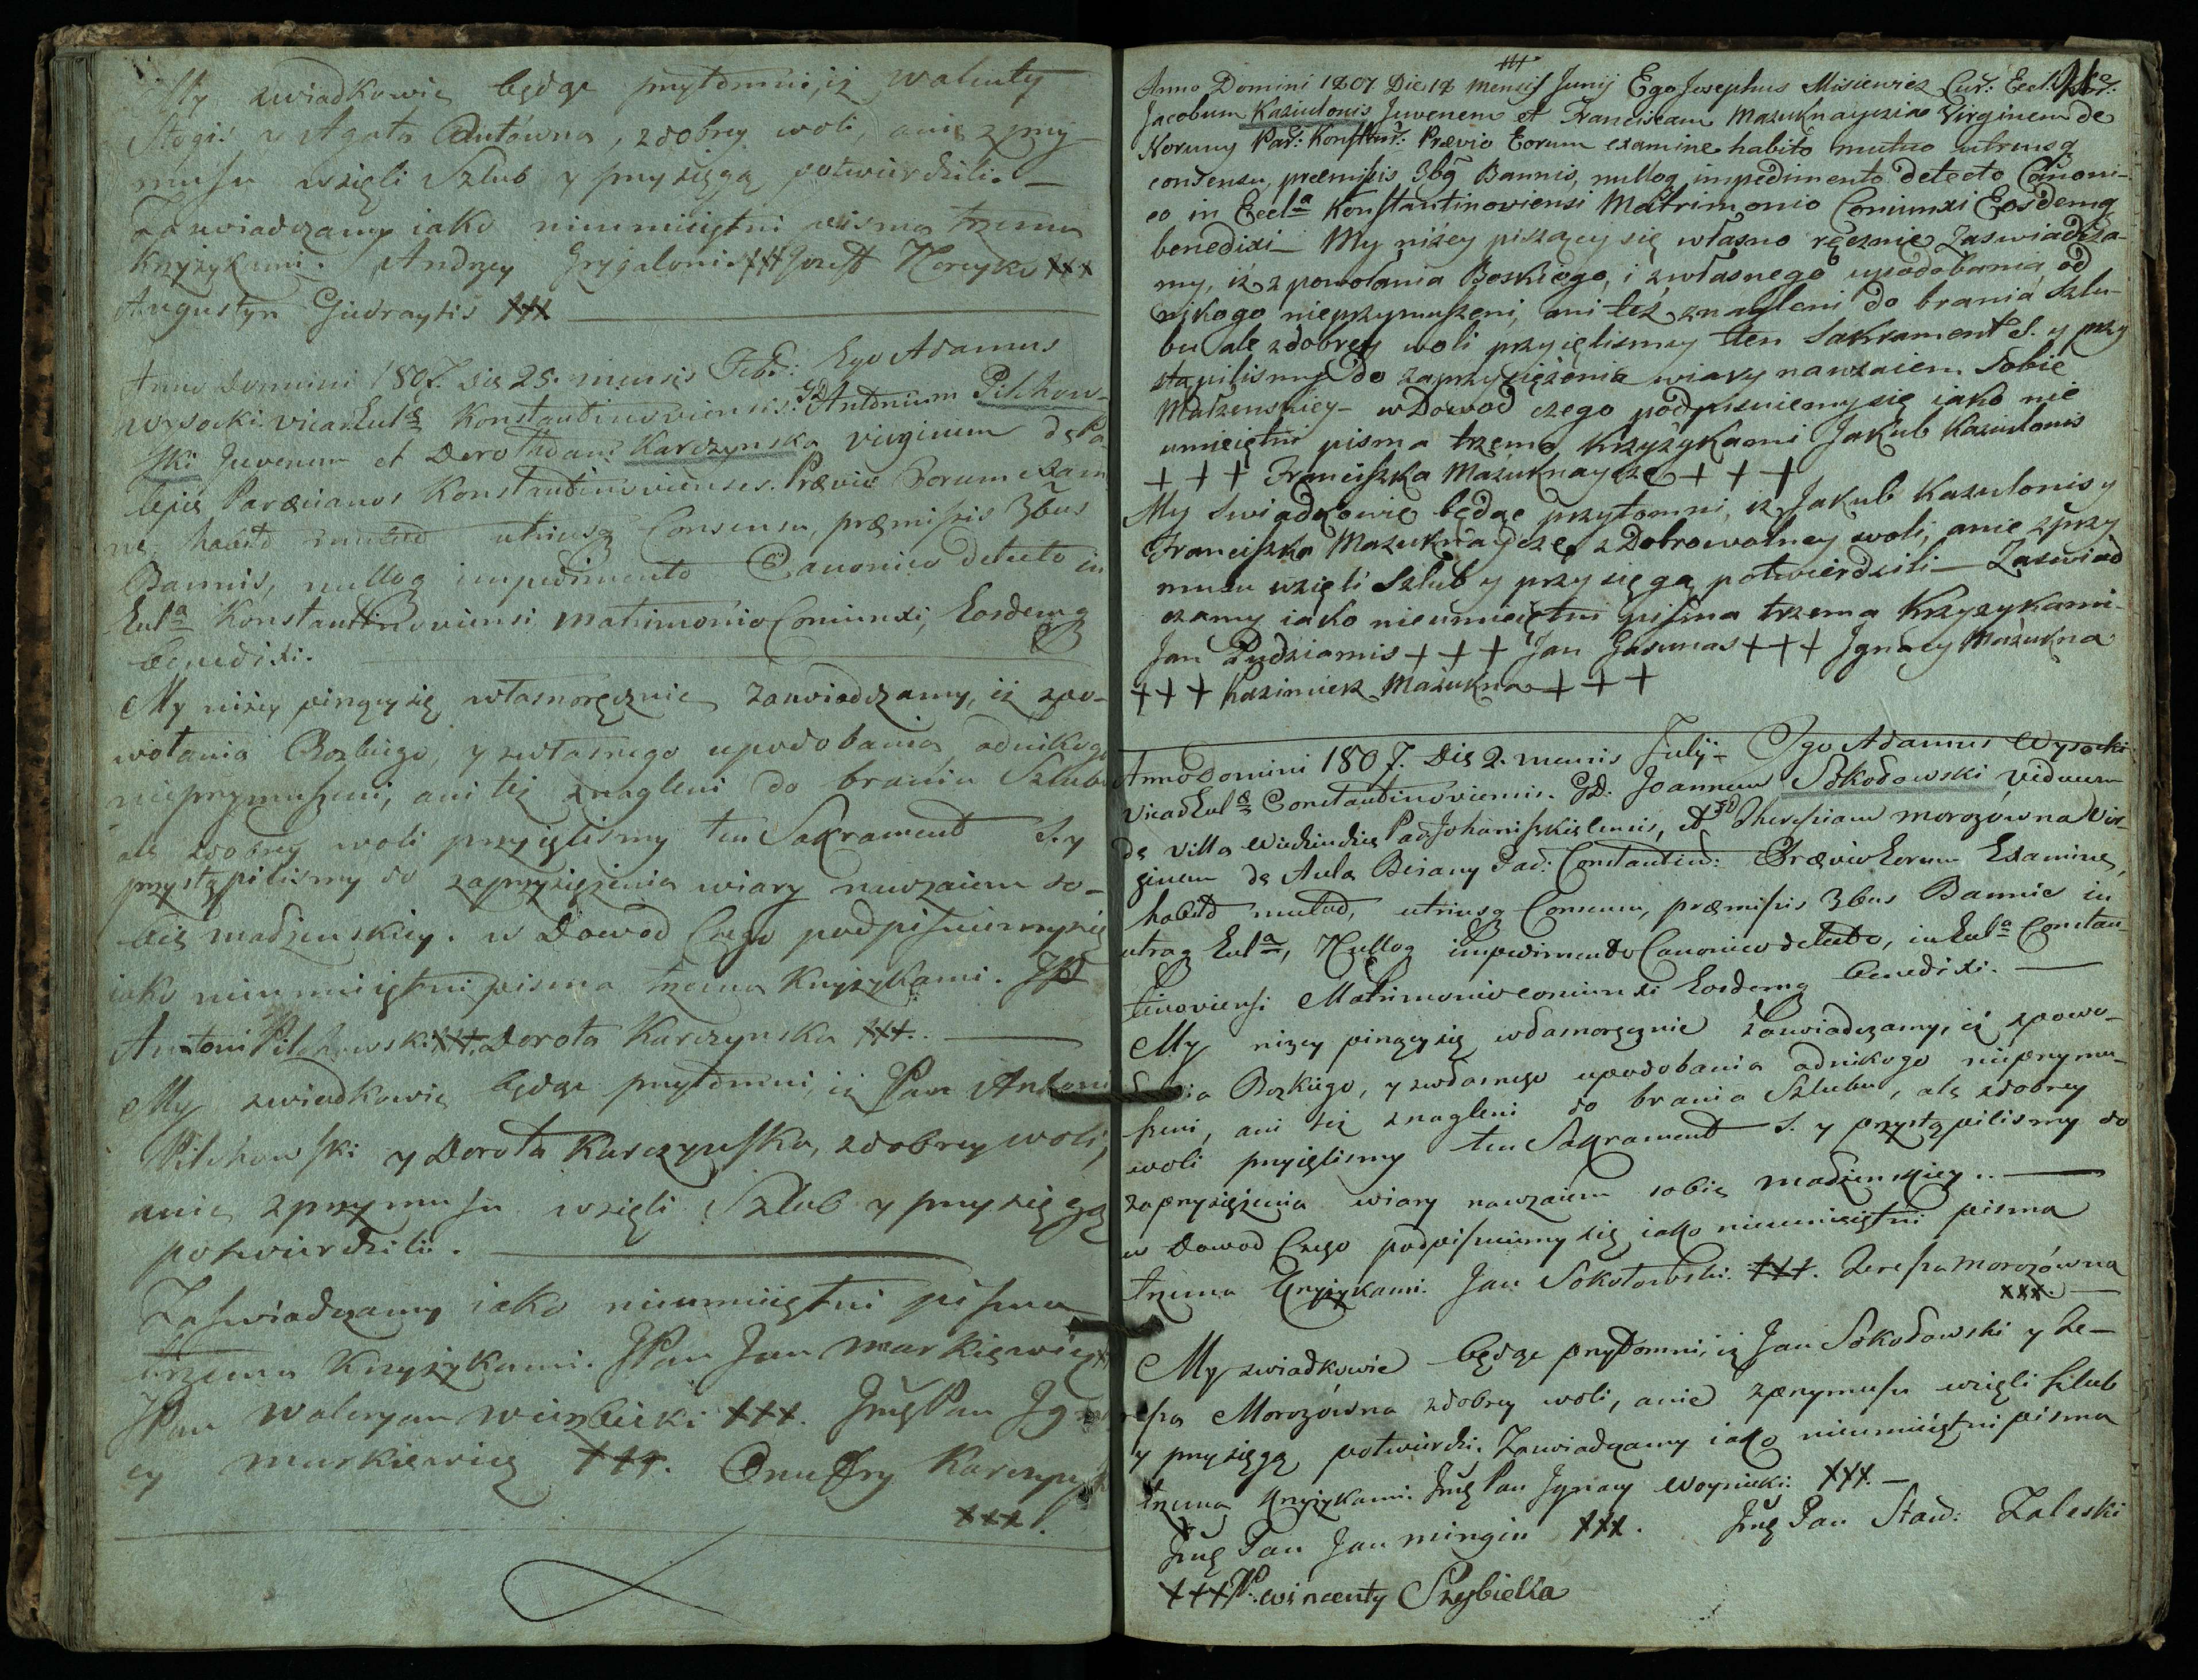 My zwiadkowie będąc przytomni, iż Walenty
Stogis y Agata Autówna, z dobrey woli, anie z przy
musu wzięli Szlub y przysięgą potwierdzili. —
Zaswiadczamy iako nieumieiętni pisma trzema
Krzyżykami. Andrzey Grygalonis +++ Jozeff Noreyko +++
Augustyn Giedraytis +++
Anno Domini 1807. Die 25. mensis Febr: Ego Adamus
Wysocki Vicar Eccl<sup>æ</sup> Konstantinoviensis. GD Antonium Pilchow-
ski Juvenem et Dorotheam Karczynska Virginem de
Parœcianos Konstantinovienses. Prævio Eorum exam
ne, habito mutuo utriusq Consensu, præmissis 3bus
Bannis, nulloq impedimento Canonico detecto in
Eccl<sup>a</sup> Konstantinoviensi matrimonio Coniunxi, Eosdemq
benedixi.
My niżey piszący się własnoręcznie zaswiadczamy, iż z po-
wołania Bozkiego, y z własnego upodobania, od nikogo
nieprzymuszeni, ani też znagleni do brania Szlubu
ale z dobrey woli przyięlismy ten Sakrament S. y
przystąpilismy do zaprzysiężenia wiary nawzaiem so-
bie małżenskiey. w Dowod Czego podpisuiemy się
iako nieumieiętni pisma trzema Krzyżykami. JP
Antoni Pilchowski +++. Dorota Karczynska +++.
My zwiadkowie będąc przytomni, iż Pan Antoni
Pilchowski y Dorota Karczynska, z dobrey woli,
anie z przymusu wzięli Szlub y przysięgą
potwierdzili.
Zaswiadczamy iako nieumieiętni pisma
trzema Krzyżykami. JPan Jan Markiewicz
JPan Waleryan Wierzbicki +++. Jmę Pan Igna
cy Markiewicz +++. Onufry Karczyns
+++.
+++
Anno Domini 1807 Die 18 Mensis Junij Ego Josephus Misiewicz Cur: Eccl:
Jacobum Kaziulonis Juvenem et Franciscam Mazuknayczia Virginem de
Noruny Par: Konstant: Prævio Eorum examine habito mutuo utriusq
consensu, præmissis 3bq Bannis, nulloq impedimento detecto Canoni-
co in Eccl<sup>a</sup> Konstantinoviensi Matrimonio Coniunxi Eosdemq
benedixi — My niżey piszący się własno ręcznie zaswiadcza-
my, iż z powołania Boskiego, i z własnego upodobania, od
nikogo nieprzymuszeni, ani też znagleni do brania Szlu-
bu ale z dobrey woli przyięlismy ten Sakrament S. y przy
stąpilismy do zaprzysiężenia wiary nawzaiem Sobie
Małżenskiey — w Dowod czego podpisuiemy się iako nie
umieiętni pisma trzema Krzyżykami Jakub Kaziulonis
+ + + Franciszka Mazuknaycze + + +
My Swiadkowie będąc przytomni, iż Jakub Kaziulonis y
Franciszka Mazuknaycze, z Dobrowolney woli, anie z przy
musu wzięli Szlub y przysięgą potwierdzili — Zaswiad
czamy iako nieumieiętni pisma trzema Krzyżykami
Jan Pudziamis + + + Jan Jasunas + + + Ignacy Mazukna
+ + + Kazimierz Mazukna + + +
Anno Domini 1807. Die 2. mensis Julij — Ego Adamus Wysocki
Vicar Eccl<sup>æ</sup> Constantinoviensis. GD. Joannem Sokołowski viduum
de Villa Par Johaniszkielensis, et GD Theresiam Morozówna Vir-
ginem de Aula Birany Par: Constantin: Prævio Eorum Examine,
habito mutuo, utriusq Consensu, præmissis 3bus Bannis in
utraq Eccl<sup>a</sup>, Nulloq impedimento Canonico detecto, in Eccl<sup>a</sup> Constan-
tinoviensi Matrimonio coniunxi Eosdemq benedixi. —
My niżey piszący się własnoręcznie zaswiadczamy, iż z powo-
łania Bozkiego, y z własnego upodobania od nikogo nieprzymu-
szeni, ani też znagleni do brania Szlubu, ale z dobrey
woli przyięlismy ten Sakrament S. y przystąpilismy do
zaprzysiężenia wiary nawzaiem sobie małżenskiey. —
w Dowod Czego podpisuiemy się iako nieumieiętni pisma
trzema Krzyżykami. Jan Sokołowski. +++. Teressa Morozówna
+++. —
My zwiadkowie będąc przytomni, iż Jan Sokołowski y Te-
ressa Morozówna z dobrey woli, anie z przymusu wzięli szlub
y przysięgą potwierdzi. Zaswiadczamy iako nieumieiętni pisma
trzema Krzyżykami. Jmę Pan Ignacy Woynicki: +++. —
Jmę Pan Jan Mingin +++. Jmę Pan Staw: Zaleski
+++ JP. Wincenty Szybiella